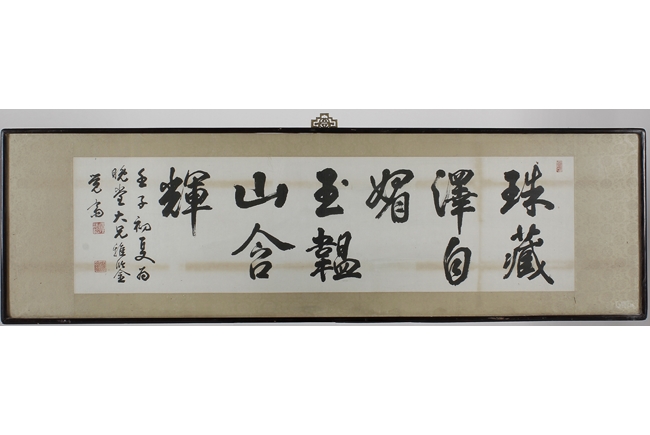 珠藏
澤自
媚
玉韞
山含
輝
壬子初夏爲
曉堂大兄雅鑒